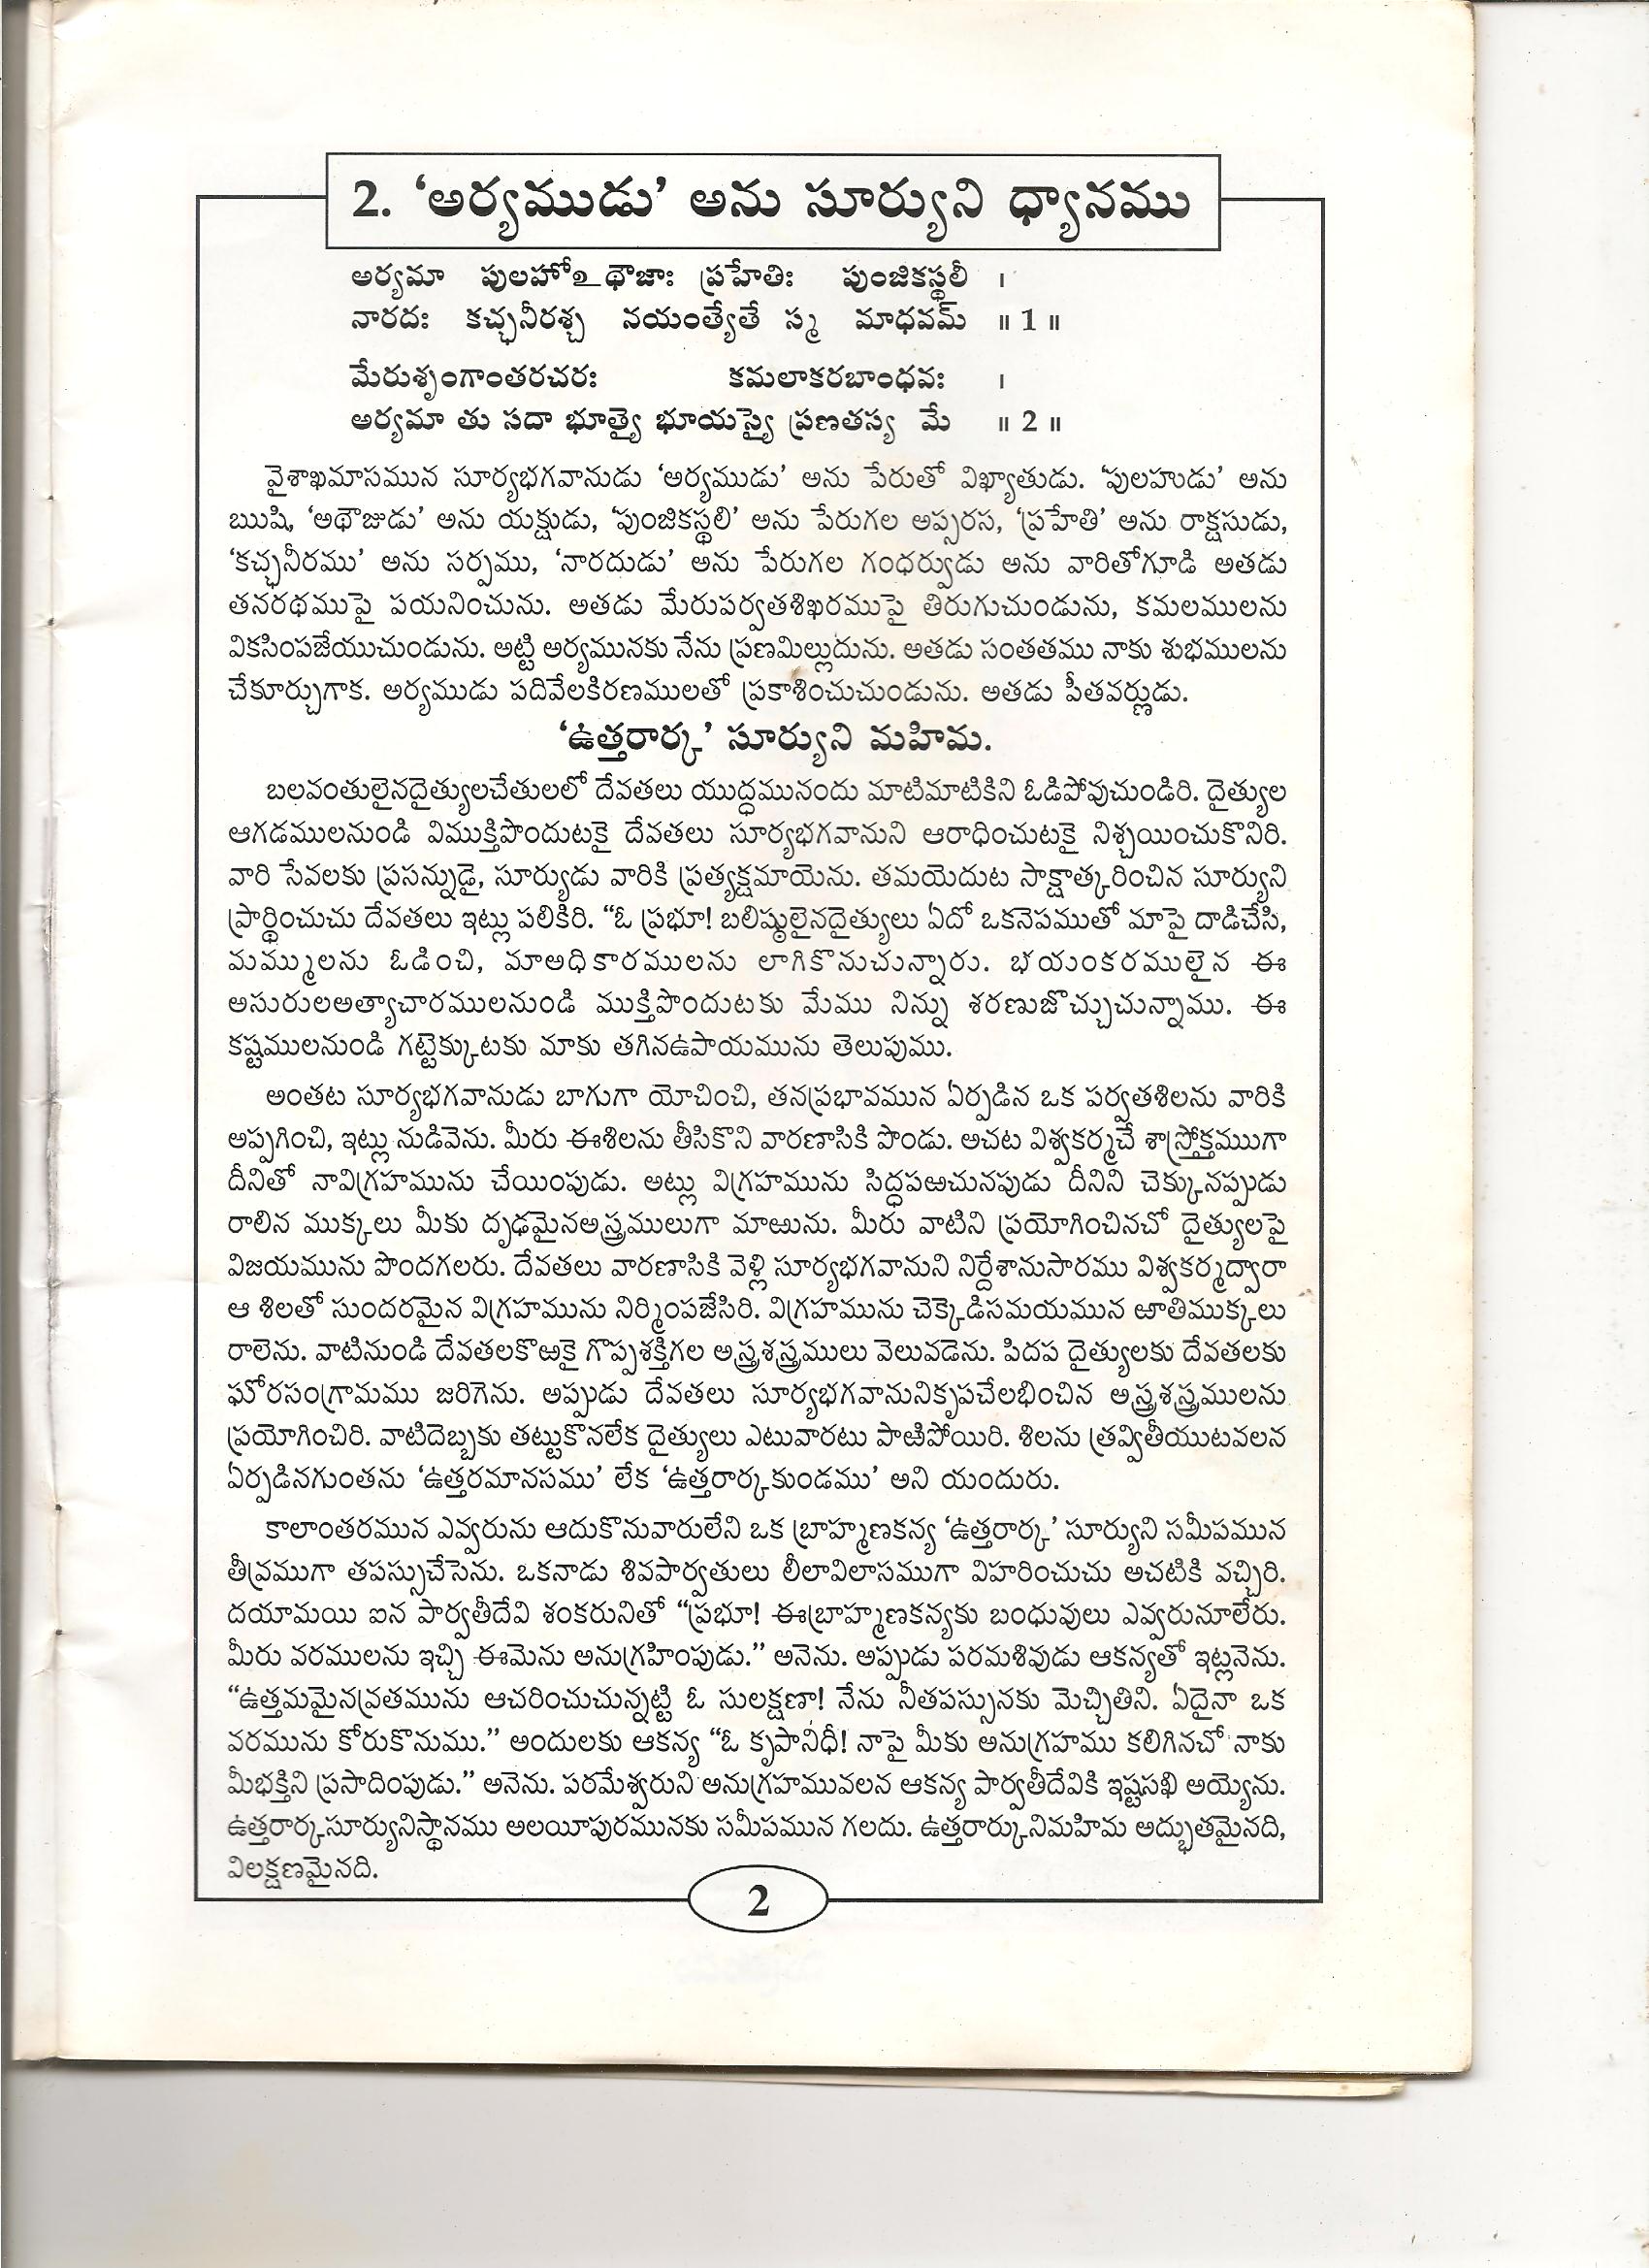 2. ‘అర్యముడు’ అను సూర్యుని ధ్యానము
అర్యమా పులహోఽథౌజాః ప్రహేతిః పుంజికస్థలీ ।
నారదః కచ్ఛనీరశ్చ నయంత్యేతే స్మ మాధవమ్ ॥ 1 ॥
మేరుశృంగాంతరచరః కమలాకరబాంధవః ।
అర్యమా తు సదా భూత్యై భూయస్యై ప్రణతస్య మే ॥ 2 ॥
వైశాఖమాసమున సూర్యభగవానుడు ‘అర్యముడు’ అను పేరుతో విఖ్యాతుడు. ‘పులహుడు’ అను
ఋషి, ‘అథౌజుడు’ అను యక్షుడు, ‘పుంజికస్థలి’ అను పేరుగల అప్సరస, ‘ప్రహేతి’ అను రాక్షసుడు,
‘కచ్ఛనీరము’ అను సర్పము, ‘నారదుడు’ అను పేరుగల గంధర్వుడు అను వారితోగూడి అతడు
తనరథముపై పయనించును. అతడు మేరుపర్వతశిఖరముపై తిరుగుచుండును, కమలములను
వికసింపజేయుచుండును. అట్టి అర్యమునకు నేను ప్రణమిల్లుదును. అతడు సంతతము నాకు శుభములను
చేకూర్చుగాక. అర్యముడు పదివేలకిరణములతో ప్రకాశించుచుండును. అతడు పీతవర్ణుడు.
‘ఉత్తరార్క’ సూర్యుని మహిమ.
బలవంతులైనదైత్యులచేతులలో దేవతలు యుద్ధమునందు మాటిమాటికిని ఓడిపోవుచుండిరి. దైత్యుల
ఆగడములనుండి విముక్తిపొందుటకై దేవతలు సూర్యభగవానుని ఆరాధించుటకై నిశ్చయించుకొనిరి.
వారి సేవలకు ప్రసన్నుడై, సూర్యుడు వారికి ప్రత్యక్షమాయెను. తమయెదుట సాక్షాత్కరించిన సూర్యుని
ప్రార్థించుచు దేవతలు ఇట్లు పలికిరి. “ఓ ప్రభూ! బలిష్ఠులైనదైత్యులు ఏదో ఒకనెపముతో మాపై దాడిచేసి,
మమ్ములను ఓడించి, మాఅధికారములను లాగికొనుచున్నారు. భయంకరములైన ఈ
అసురులఅత్యాచారములనుండి ముక్తిపొందుటకు మేము నిన్ను శరణుజొచ్చుచున్నాము. ఈ
కష్టములనుండి గట్టెక్కుటకు మాకు తగినఉపాయమును తెలుపుము.
అంతట సూర్యభగవానుడు బాగుగా యోచించి, తనప్రభావమున ఏర్పడిన ఒక పర్వతశిలను వారికి
అప్పగించి, ఇట్లు నుడివెను. మీరు ఈశిలను తీసికొని వారణాసికి పొండు. అచట విశ్వకర్మచే శాస్త్రోక్తముగా
దీనితో నావిగ్రహమును చేయింపుడు. అట్లు విగ్రహమును సిద్ధపఱచునపుడు దీనిని చెక్కునప్పుడు
రాలిన ముక్కలు మీకు దృఢమైనఅస్త్రములుగా మాఱును. మీరు వాటిని ప్రయోగించినచో దైత్యులపై
విజయమును పొందగలరు. దేవతలు వారణాసికి వెళ్లి సూర్యభగవానుని నిర్దేశానుసారము విశ్వకర్మద్వారా
ఆ శిలతో సుందరమైన విగ్రహమును నిర్మింపజేసిరి. విగ్రహమును చెక్కెడిసమయమున ఱాతిముక్కలు
రాలెను. వాటినుండి దేవతలకొఱకై గొప్పశక్తిగల అస్త్రశస్త్రములు వెలువడెను. పిదప దైత్యులకు దేవతలకు
ఘోరసంగ్రామము జరిగెను. అప్పుడు దేవతలు సూర్యభగవానునికృపచేలభించిన అస్త్రశస్త్రములను
ప్రయోగించిరి. వాటిదెబ్బకు తట్టుకొనలేక దైత్యులు ఎటువారటు పాఱిపోయిరి. శిలను త్రవ్వితీయుటవలన
ఏర్పడినగుంతను ‘ఉత్తరమానసము’ లేక ‘ఉత్తరార్కకుండము’ అని యందురు.
కాలాంతరమున ఎవ్వరును ఆదుకొనువారులేని ఒక బ్రాహ్మణకన్య ‘ఉత్తరార్క’ సూర్యుని సమీపమున
తీవ్రముగా తపస్సుచేసెను. ఒకనాడు శివపార్వతులు లీలావిలాసముగా విహరించుచు అచటికి వచ్చిరి.
దయామయి ఐన పార్వతీదేవి శంకరునితో “ప్రభూ! ఈబ్రాహ్మణకన్యకు బంధువులు ఎవ్వరునూలేరు.
మీరు వరములను ఇచ్చి ఈమెను అనుగ్రహింపుడు.” అనెను. అప్పుడు పరమశివుడు ఆకన్యతో ఇట్లనెను.
“ఉత్తమమైనవ్రతమును ఆచరించుచున్నట్టి ఓ సులక్షణా! నేను నీతపస్సునకు మెచ్చితిని. ఏదైనా ఒక
వరమును కోరుకొనుము.” అందులకు ఆకన్య “ఓ కృపానిధీ! నాపై మీకు అనుగ్రహము కలిగినచో నాకు
మీభక్తిని ప్రసాదింపుడు.” అనెను. పరమేశ్వరుని అనుగ్రహమువలన ఆకన్య పార్వతీదేవికి ఇష్టసఖి అయ్యెను.
ఉత్తరార్కసూర్యునిస్థానము అలయీపురమునకు సమీపమున గలదు. ఉత్తరార్కునిమహిమ అద్భుతమైనది,
విలక్షణమైనది.
2